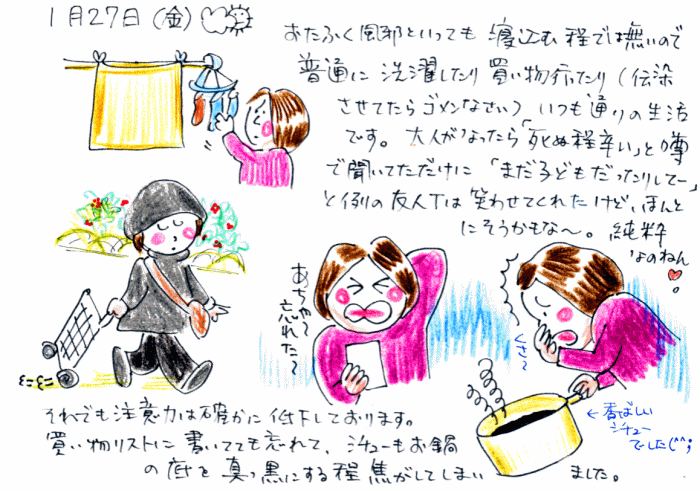 1月27日(金)
おたふく風邪といっても寝込む程では無いので
普通に洗濯したり買い物行ったり(伝染
させてたらゴメンなさい)いつも通りの生活
です。大人がなったら「死ぬ程辛い」と噂
で聞いてただけに「まだ子どもだったりしてー」
と例の友人Tは笑わせてくれたけど、ほんと
にそうかもな〜。純粋
なのねん
あちゃ〜
忘れた〜
くさ〜
←香ばしい
シチュー
でした(^^;
それでも注意力は確かに低下しております。
買い物リストに書いてても忘れて、シチューもお鍋
の底を真っ黒にする程焦がしてしまい ました。